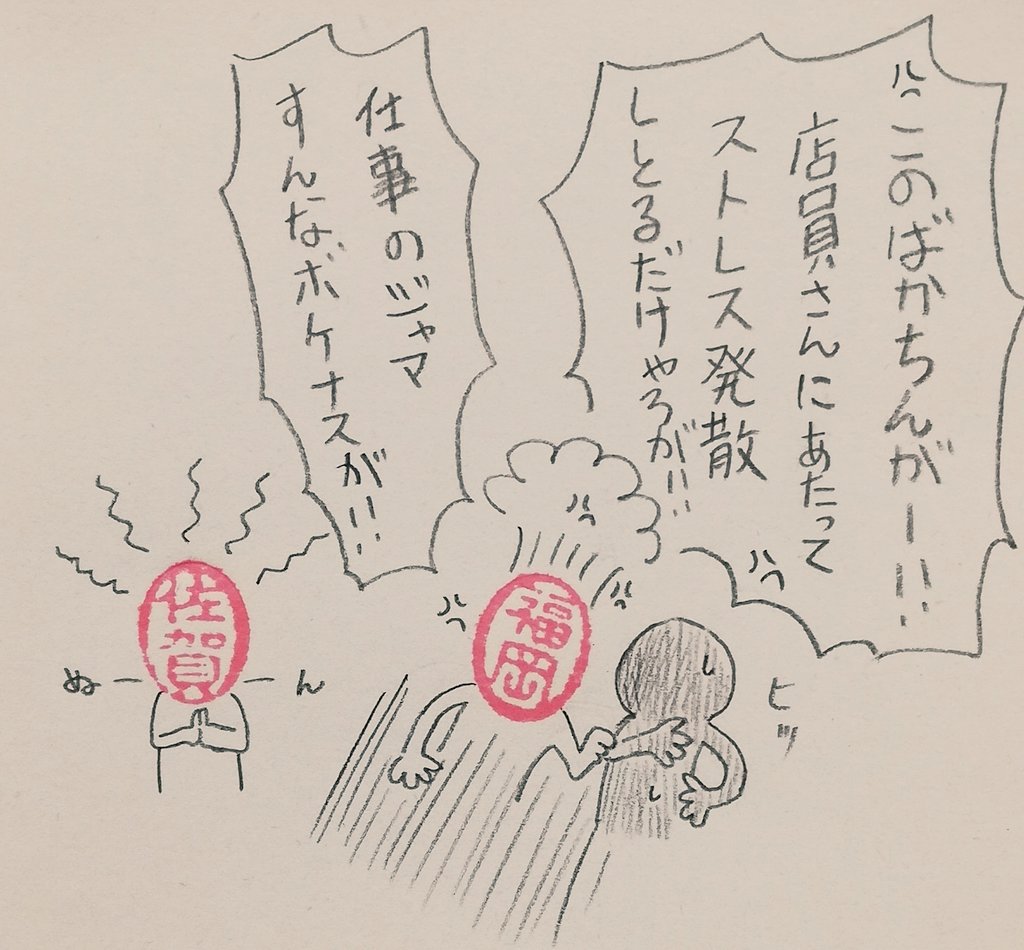 このばかちんがー!!
店員さんにあたって
ストレス発散
しとるだけやろが!!
仕事のジャマ
すんなボケナスが!!
佐賀
ぬーーん
福岡
ヒッ